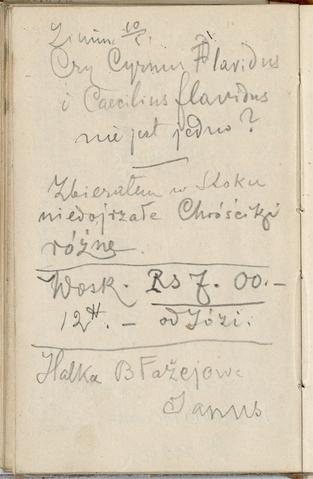 Zimm. 10/5.
Czy Cyrnus Flavidus
i Caecilius flavidus
nie jest jedno?
Zbierałem w Stoku
niedojrzałe Chróściki
różne.
Wosk. Rs 7. 00.–
12 . – od Józi.
Halka Błażejowa
Janus